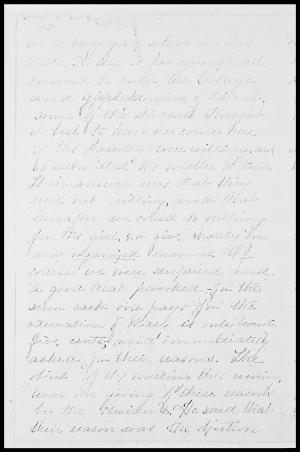 is a very good school in this
state. As she is far enough ad
vanced to enter the College
and gives promise of talent,
some of the students thought
it best to have her come here
if the Faculty were willing, and
so submitted the matter to them.
Their answer was that they
were not willing, and that
hereafter we could do nothing
for the girl, nor give charity in
any organized manner. Of
course we were surprised and
a good deal provoked - for the
sum each one pays for the
education of is only twenty
five cents, and immediately
asked for their reasons. The
object of the meeting this morning
was the giving of these reasons
by the President. He said that
their reason was the objection